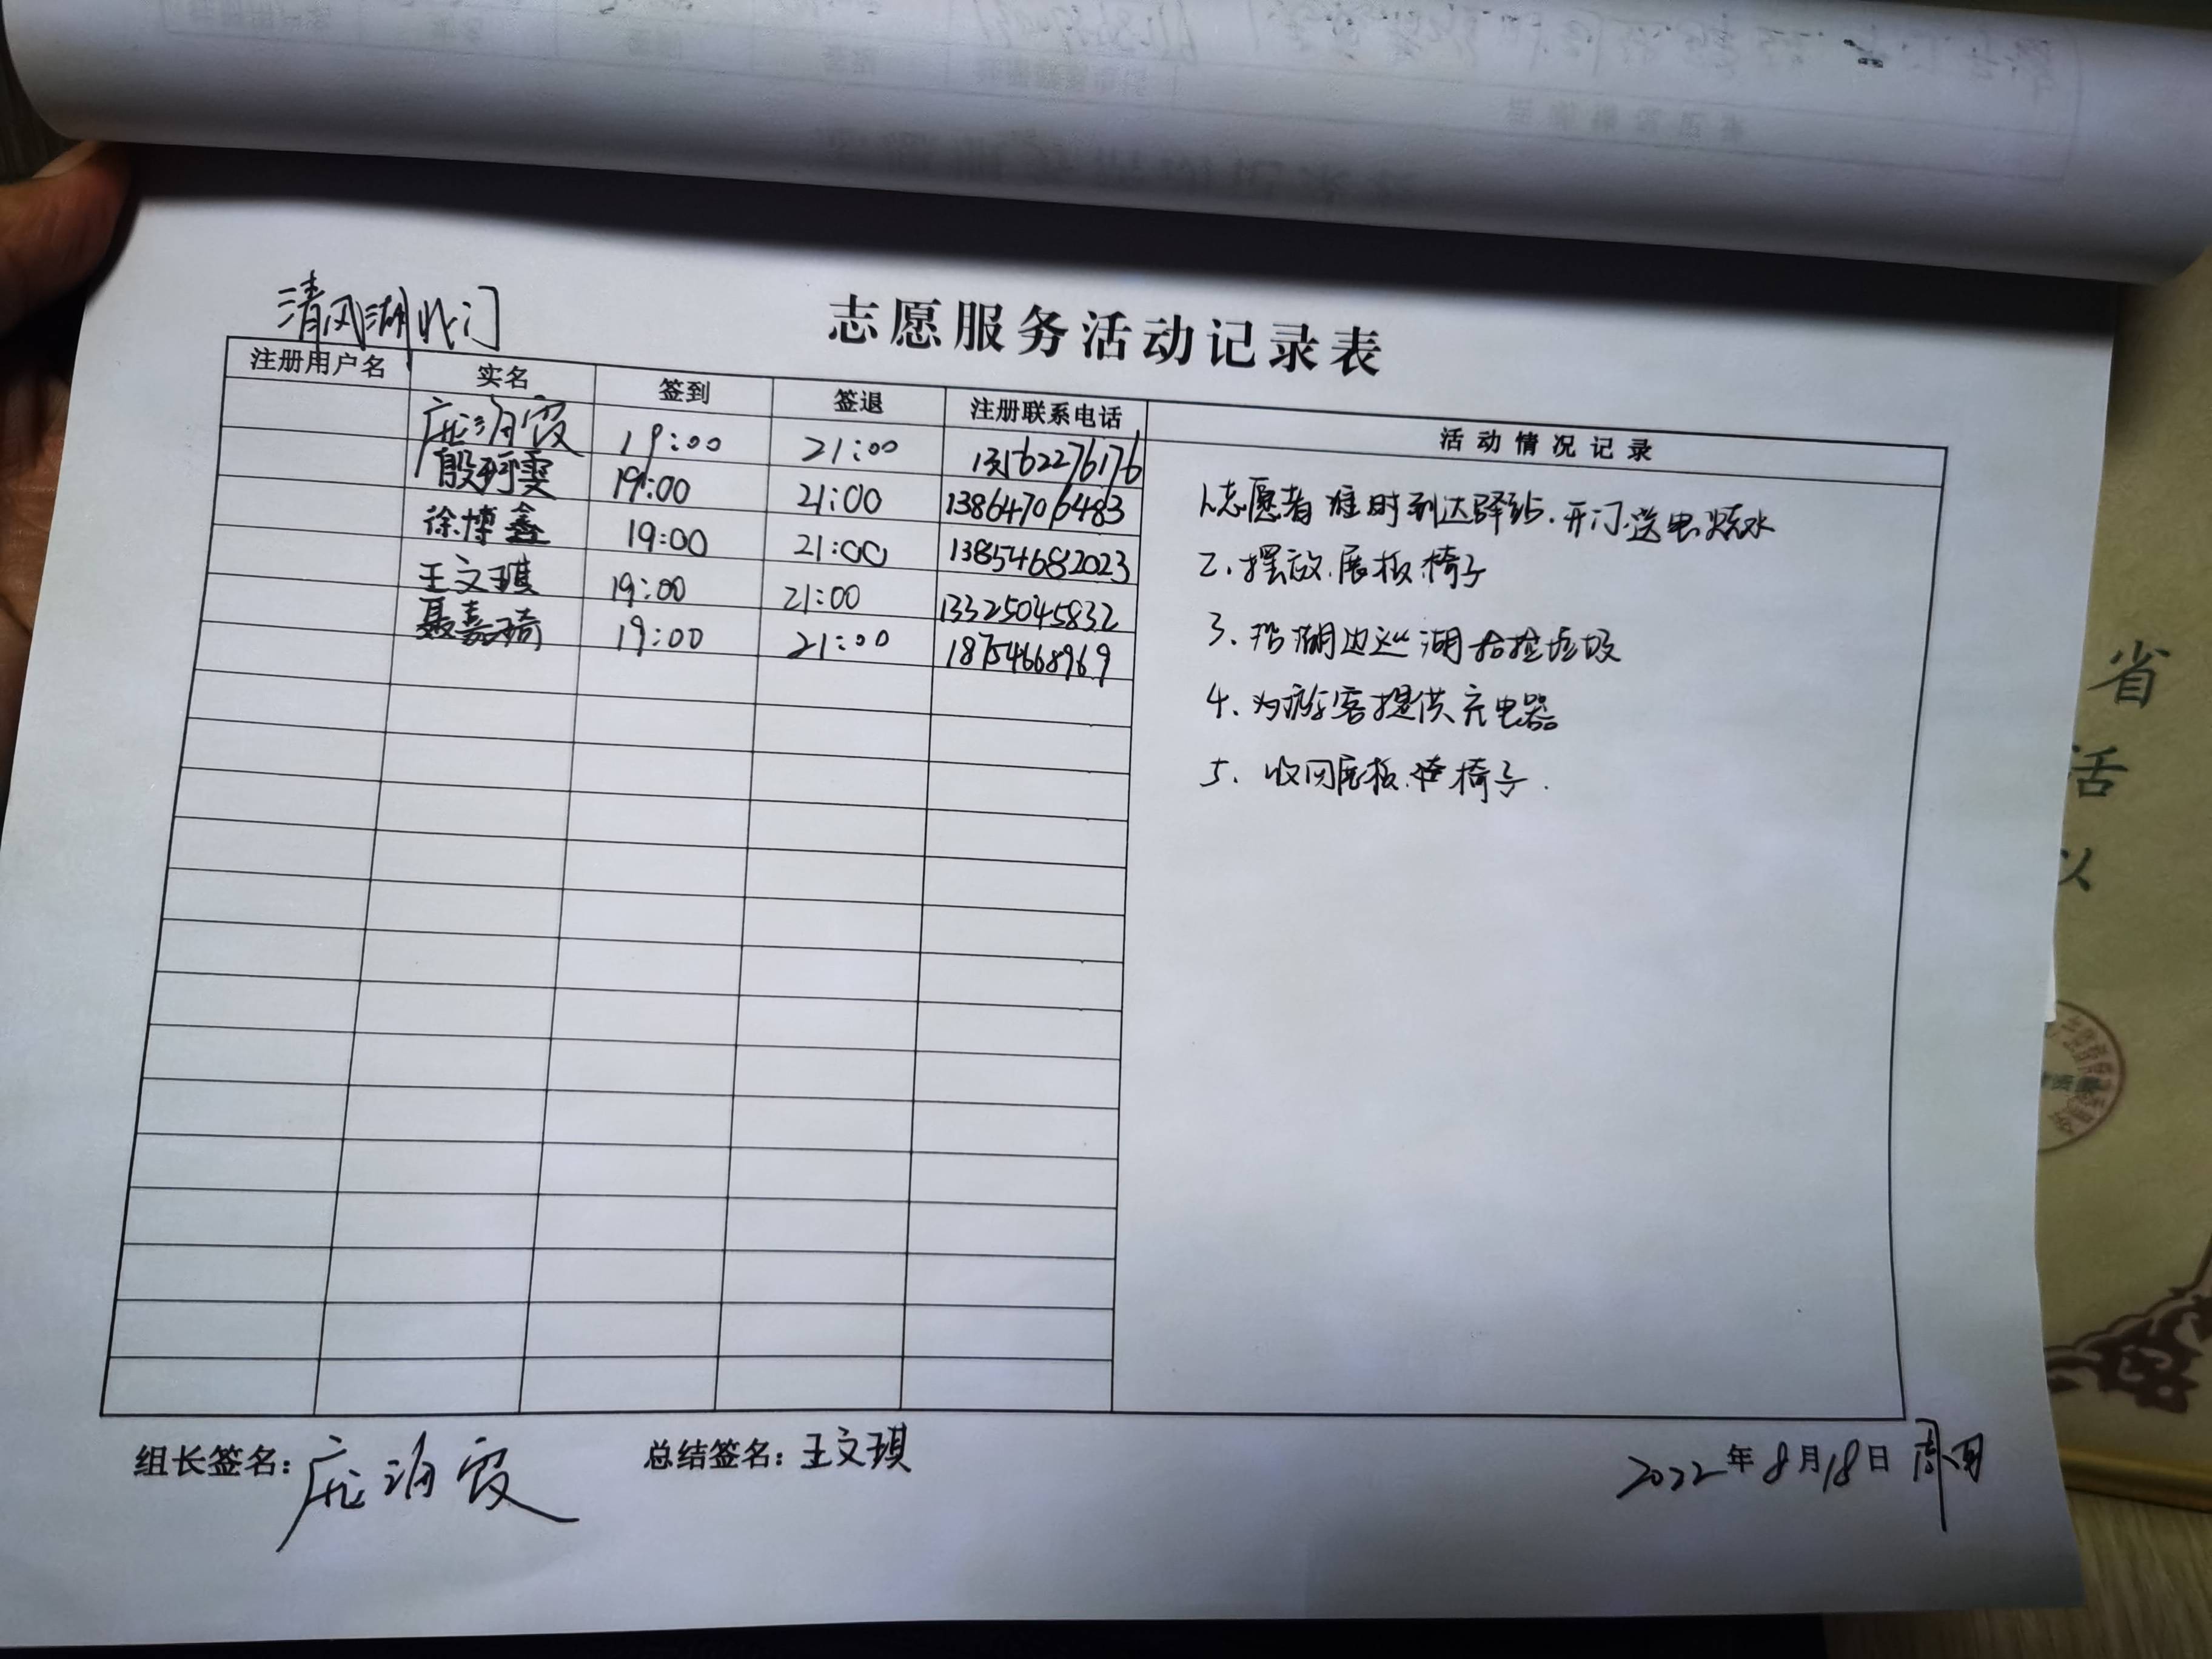 清风湖北门
志愿服务活动记录表
注册用户名 实名 签到 签退 注册联系电话 活动情况记录
庞海霞 19:00 21:00 13562276176
殷珂雯 19:00 21:00 13864706483
徐博鑫 19:00 21:00 13854682023
王文琪 19:00 21:00 13325045832
聂嘉琦 19:00 21:00 18754668969
1.志愿者准时到达驿站.开门.送电.烧水
2.摆放.展板.椅子
3.沿湖边巡湖拾捡垃圾
4.为游客提供充电器
5.收回展板.椅子.
组长签名:庞海霞 总结签名:王文琪 2022年8月18日 周四
省
活
以